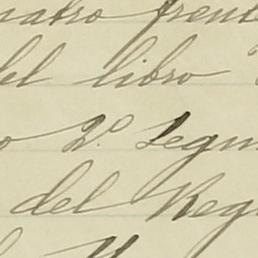 uatro frent
del libro
o 2.º Segun
del Reg